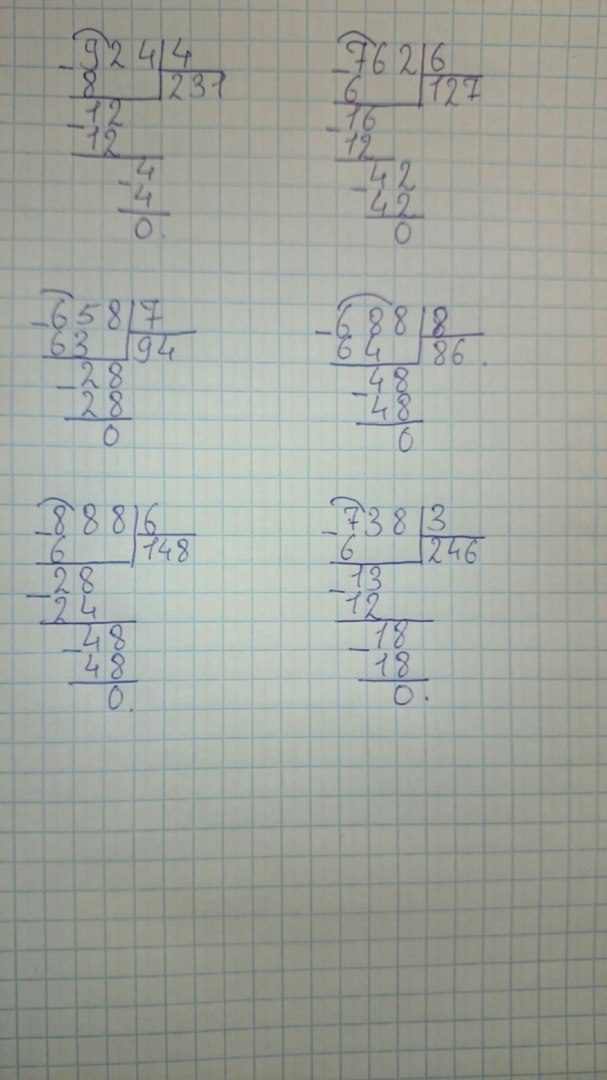 924 4
8 231
-12
12
-4
4
0.
-762 6
6 127
-16
12
-42
42
0
-658 7
63 94
-28
28
0
-688 8
64 86.
-48
48
0
-888 6
6 148
-28
24
-48
48
0.
-738 3
6 246
-13
12
-18
18
0.